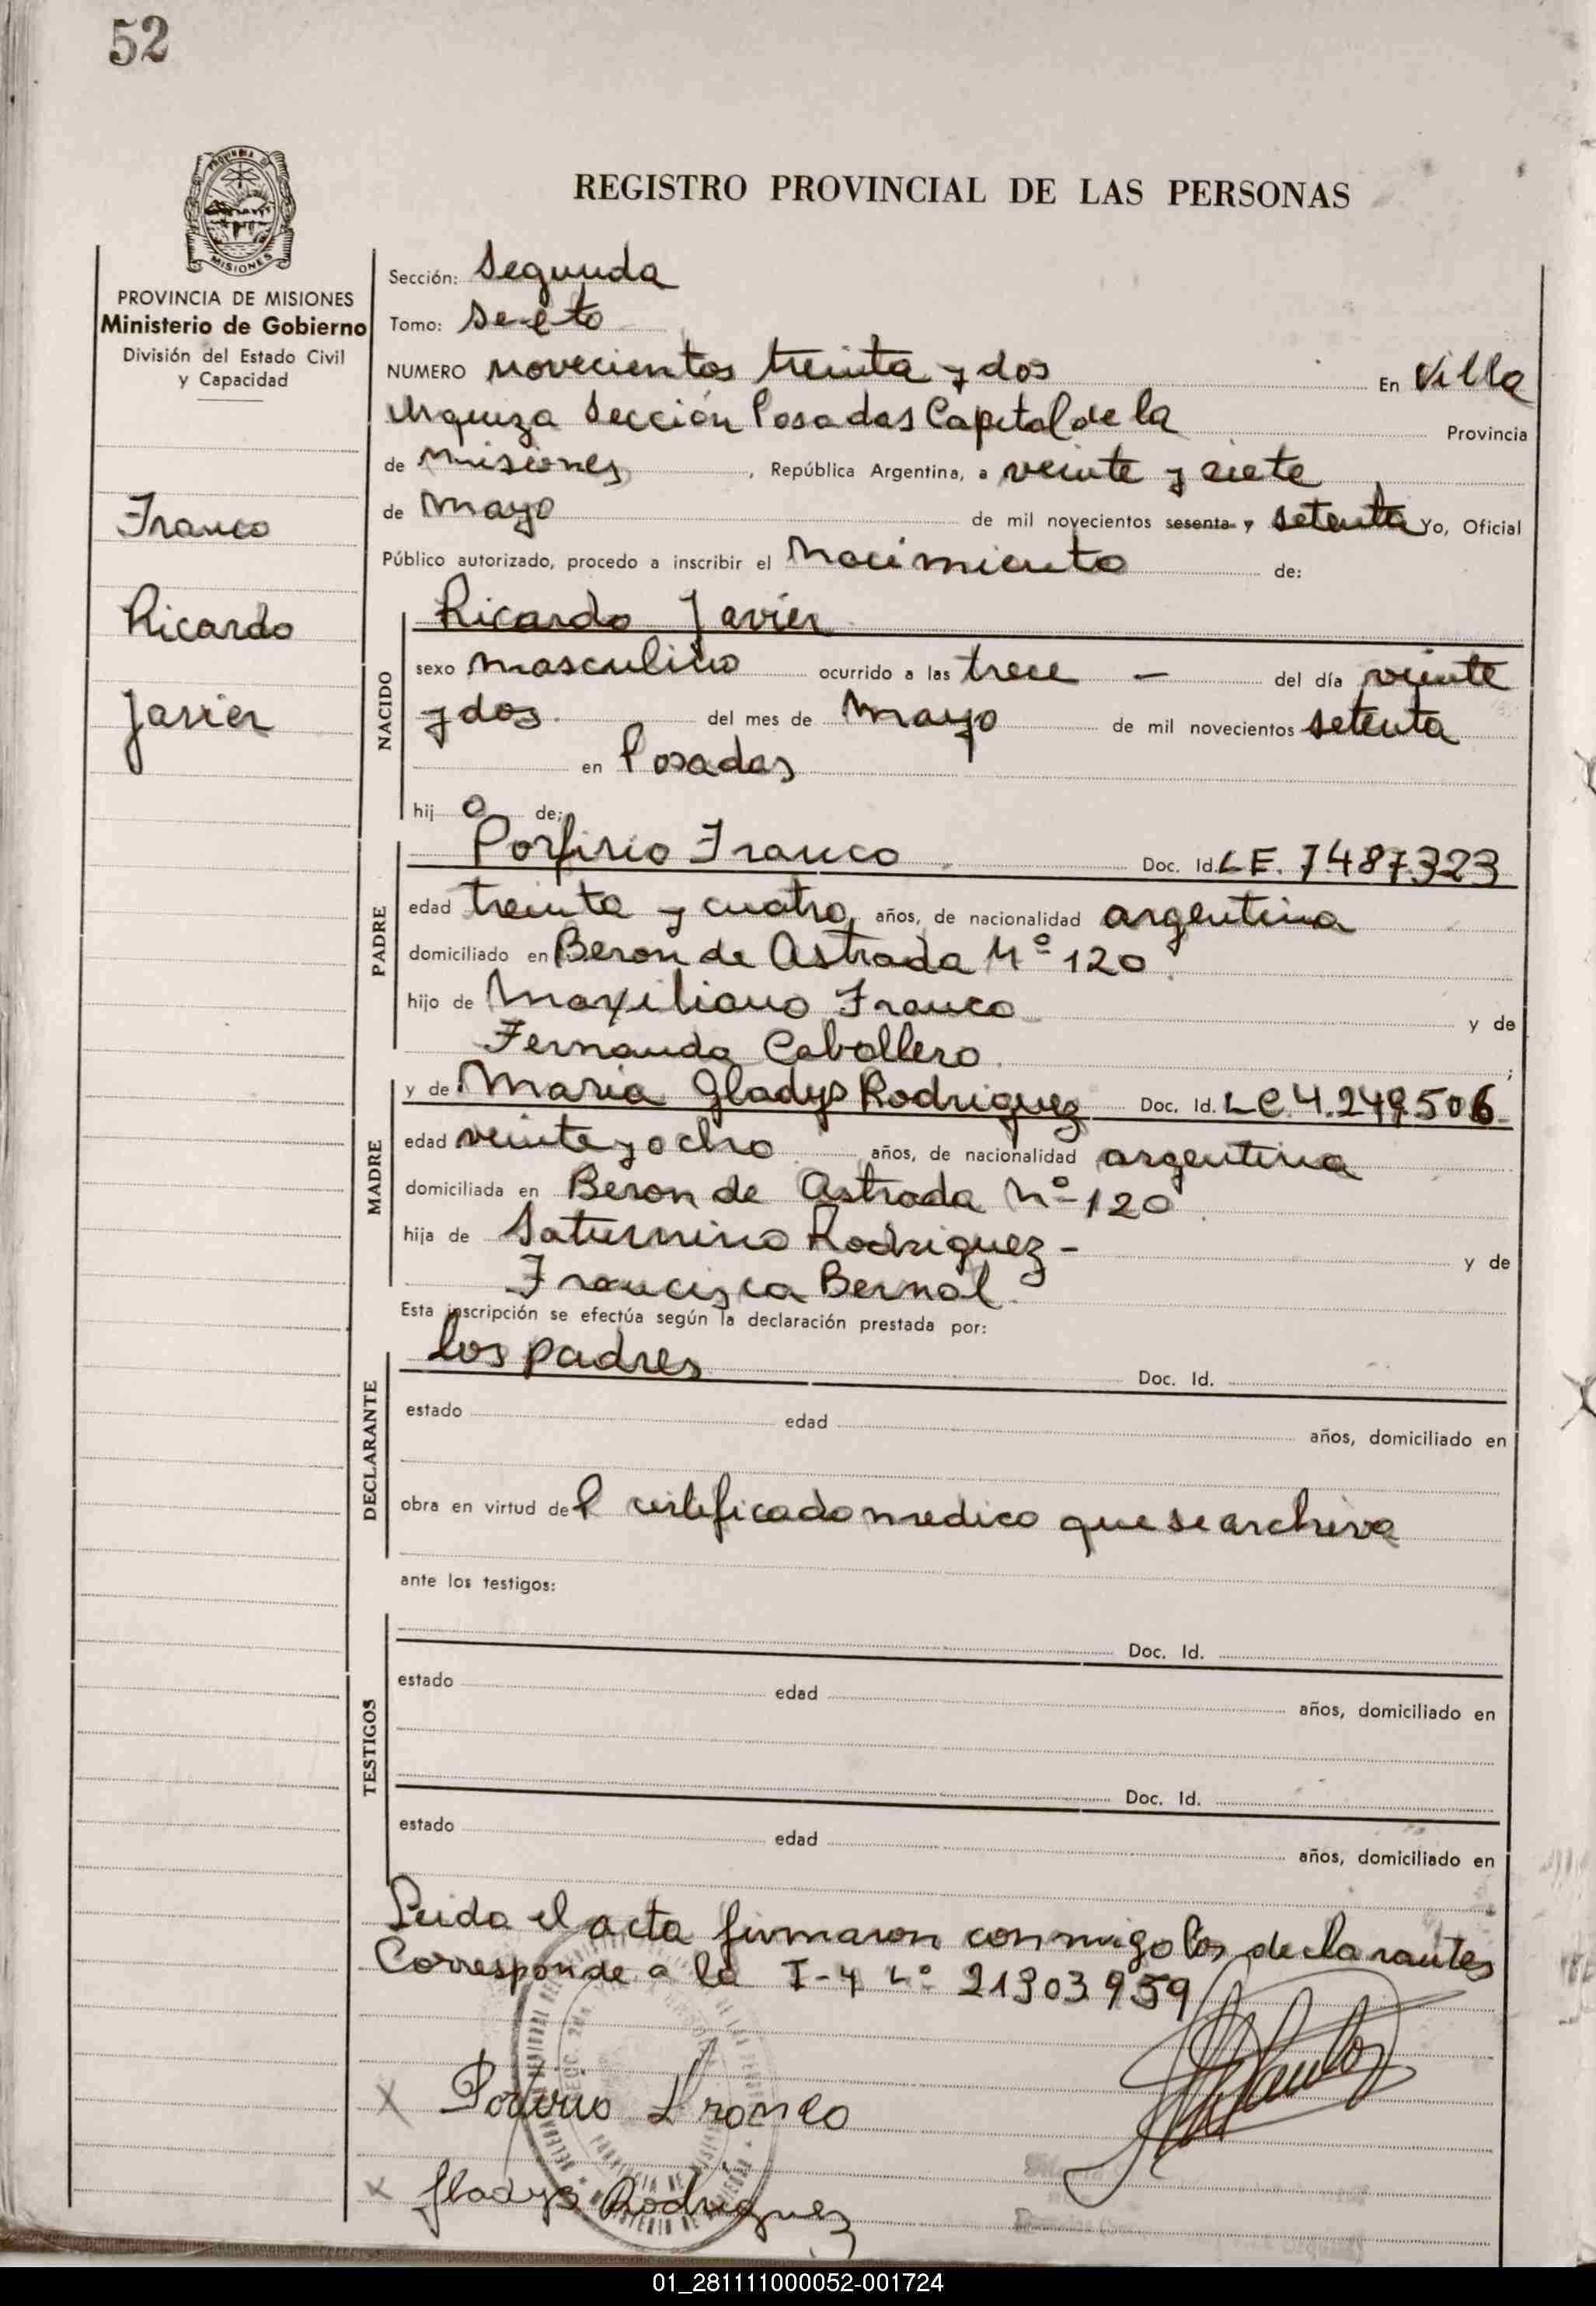 52
REGISTRO PROVINCIAL DE LAS PERSONAS
PROVINCIA DE MISIONES
Ministerio de Gobierno
División del Estado Civil
y Capacidad
Franco
Ricardo
Javier
Sección: Segunda
Tomo: Sexto
NUMERO novecientos treinta y dos En Villa
Urquiza Sección Posadas Capital de la Provincia
de Misiones, República Argentina, a veinte y siete
de Mayo de mil novecientos sesenta y setenta Yo, Oficial
Público autorizado, procedo a inscribir el Nacimiento de:
NACIDO
Ricardo Javier
sexo masculino ocurrido a las trece — del día veinte
y dos del mes de Mayo de mil novecientos setenta
en Posadas
hij o de:
PADRE
Porfirio Franco Doc. Id. LE. 7.487.323
edad treinta y cuatro años, de nacionalidad argentina
domiciliado en Beron de Astrada Nº 120
hijo de Maxiliano Franco y de
Fernanda Caballero ;
MADRE
y de Maria Gladys Rodriguez Doc. Id. LC 4.249.506
edad veinte y ocho años, de nacionalidad argentina
domiciliada en Beron de Astrada Nº 120
hija de Saturnino Rodriguez - y de
Francisca Bernal.
Esta inscripción se efectúa según la declaración prestada por:
DECLARANTE
los padres Doc. Id.
estado edad años, domiciliado en
obra en virtud del certificado medico que se archiva
ante los testigos:
TESTIGOS
Doc. Id.
estado edad años, domiciliado en
Doc. Id.
estado edad años, domiciliado en
Leida el acta firmaron conmigo los declarantes
Corresponde a la I-4 Nº 21303959
X Porfirio Franco
X Gladys Rodriguez
01_281111000052-001724